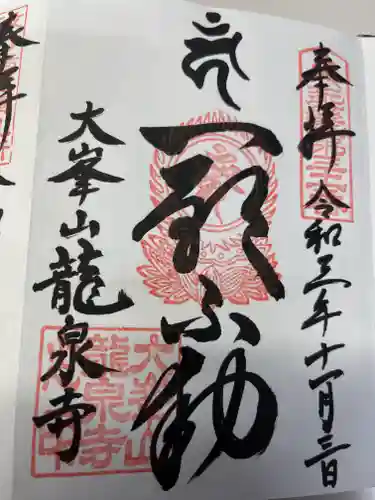 奉拝 令和三年十一月三日
一願不動
大峯山龍泉寺
大峯山
龍泉寺